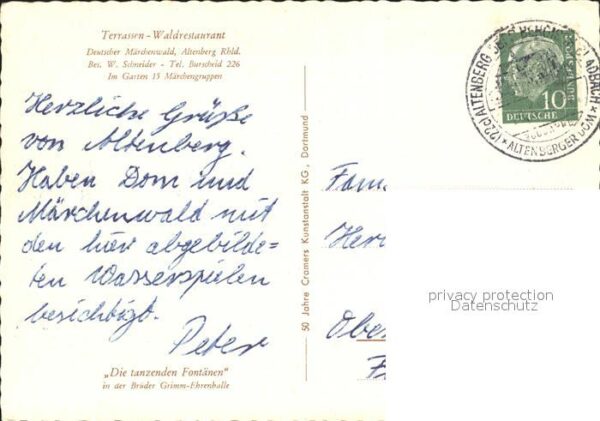 Terrassen - Waldrestaurant
Deutscher Märchenwald, Altenberg Rhld.
Bes. W. Schneider - Tel. Burscheid 226
Im Garten 15 Märchengruppen
Herzliche Grüße
von Altenberg.
Haben Dom und
Märchenwald mit
den hier abgebilde-
ten Wasserspielen
besichtigt.
Peter
„Die tanzenden Fontänen"
in der Brüder Grimm-Ehrenhalle
50 Jahre Cramers Kunstanstalt KG., Dortmund
(22c) ALTENBERG
GLADBACH
* ALTENBERGER DOM *
10
DEUTSCHE
BUNDESPOST
Fam
Her
Obe
privacy protection
Datenschutz